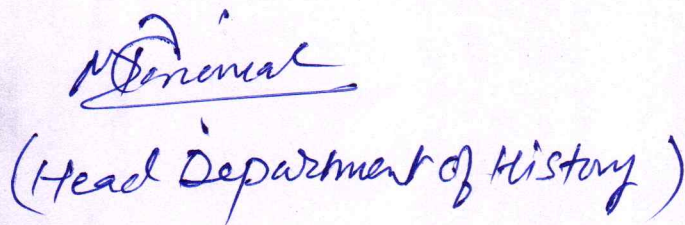 (Head Department of History)